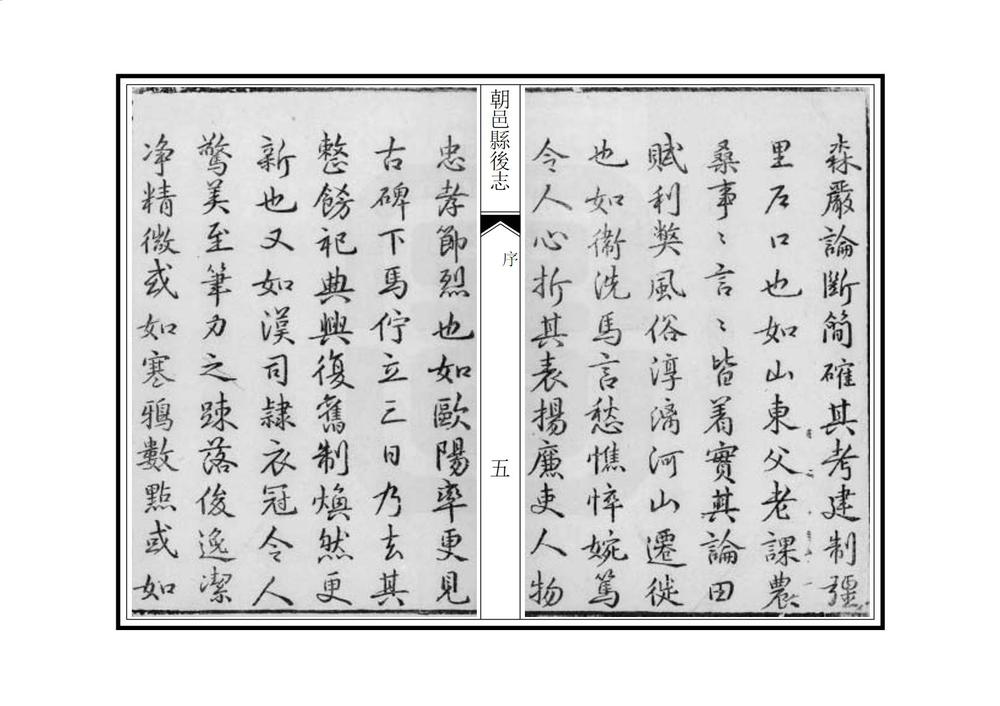 森嚴論斷簡確其考建制疆
里户口也如山東父老課農
桑事〻言〻皆着實其論田
賦利獘風俗淳漓河山遷徙
也如衞洗馬言愁憔悴婉篤
令人心折其表揚廉吏人物
朝邑縣後志
序
五
忠孝節烈也如歐陽率更見
古碑下馬佇立三日乃去其
整飭祀典興復舊制煥然更
新也又如漢司隷衣冠令人
驚美至筆力之踈落俊逸潔
净精微或如寒鴉數點或如